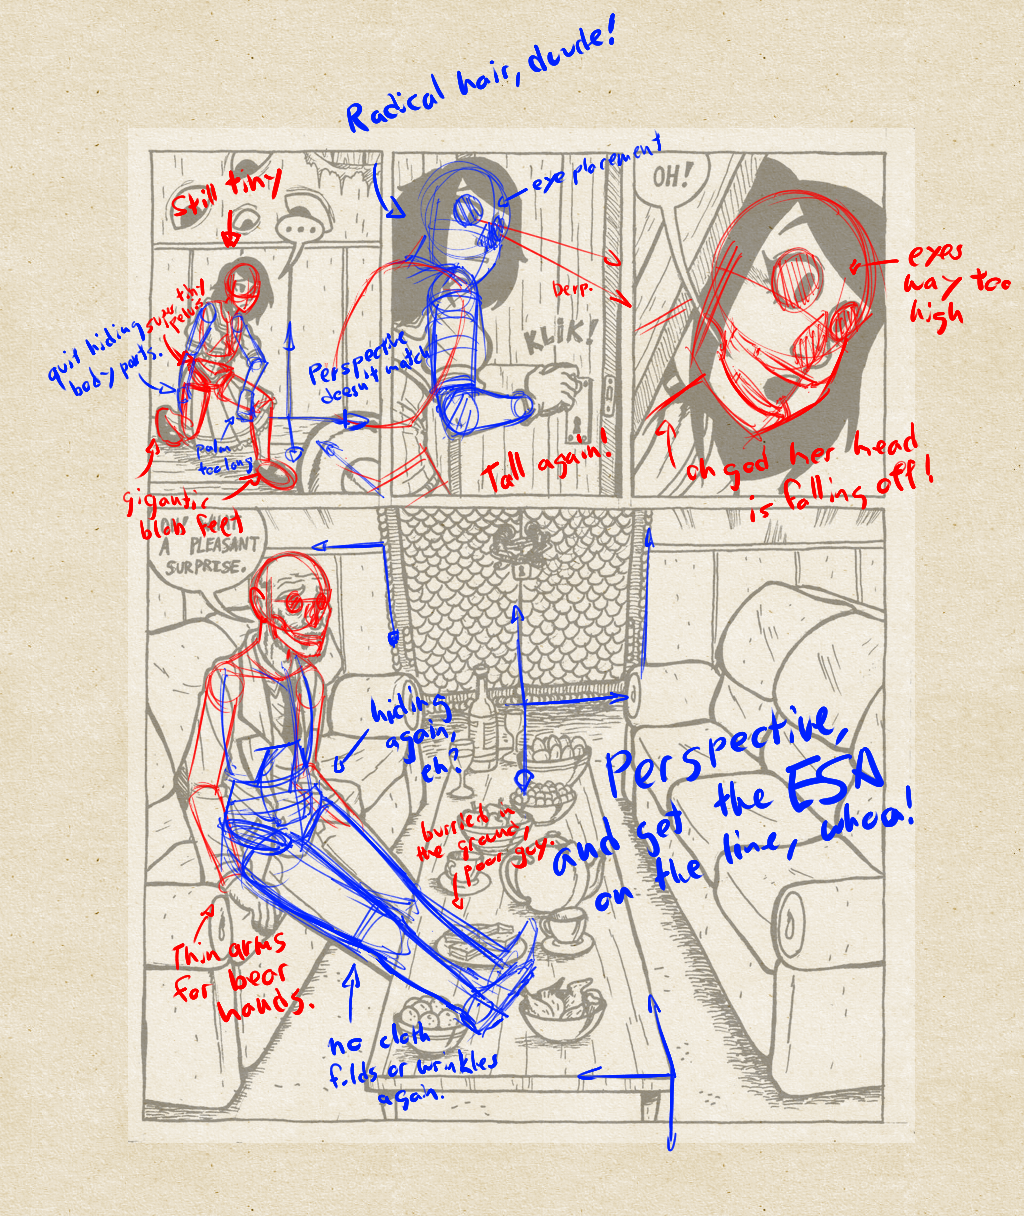 Radical hair, dude!
Still tiny
...
super tiny
pelvis
quit hiding
body parts.
palm
too long
gigantic
blob feet
eye placement
Derp.
KLIK!
Perspective
doesn't match
Tall again!
OH!
eyes
way too
high
oh god her head
is falling off!
A PLEASANT
SURPRISE.
hiding
again,
eh?
burried in
the ground,
poor guy.
Perspective,
and get the ESA
on the line, whoa!
Thin arms
for bear
hands.
no cloth
folds or wrinkles
again.